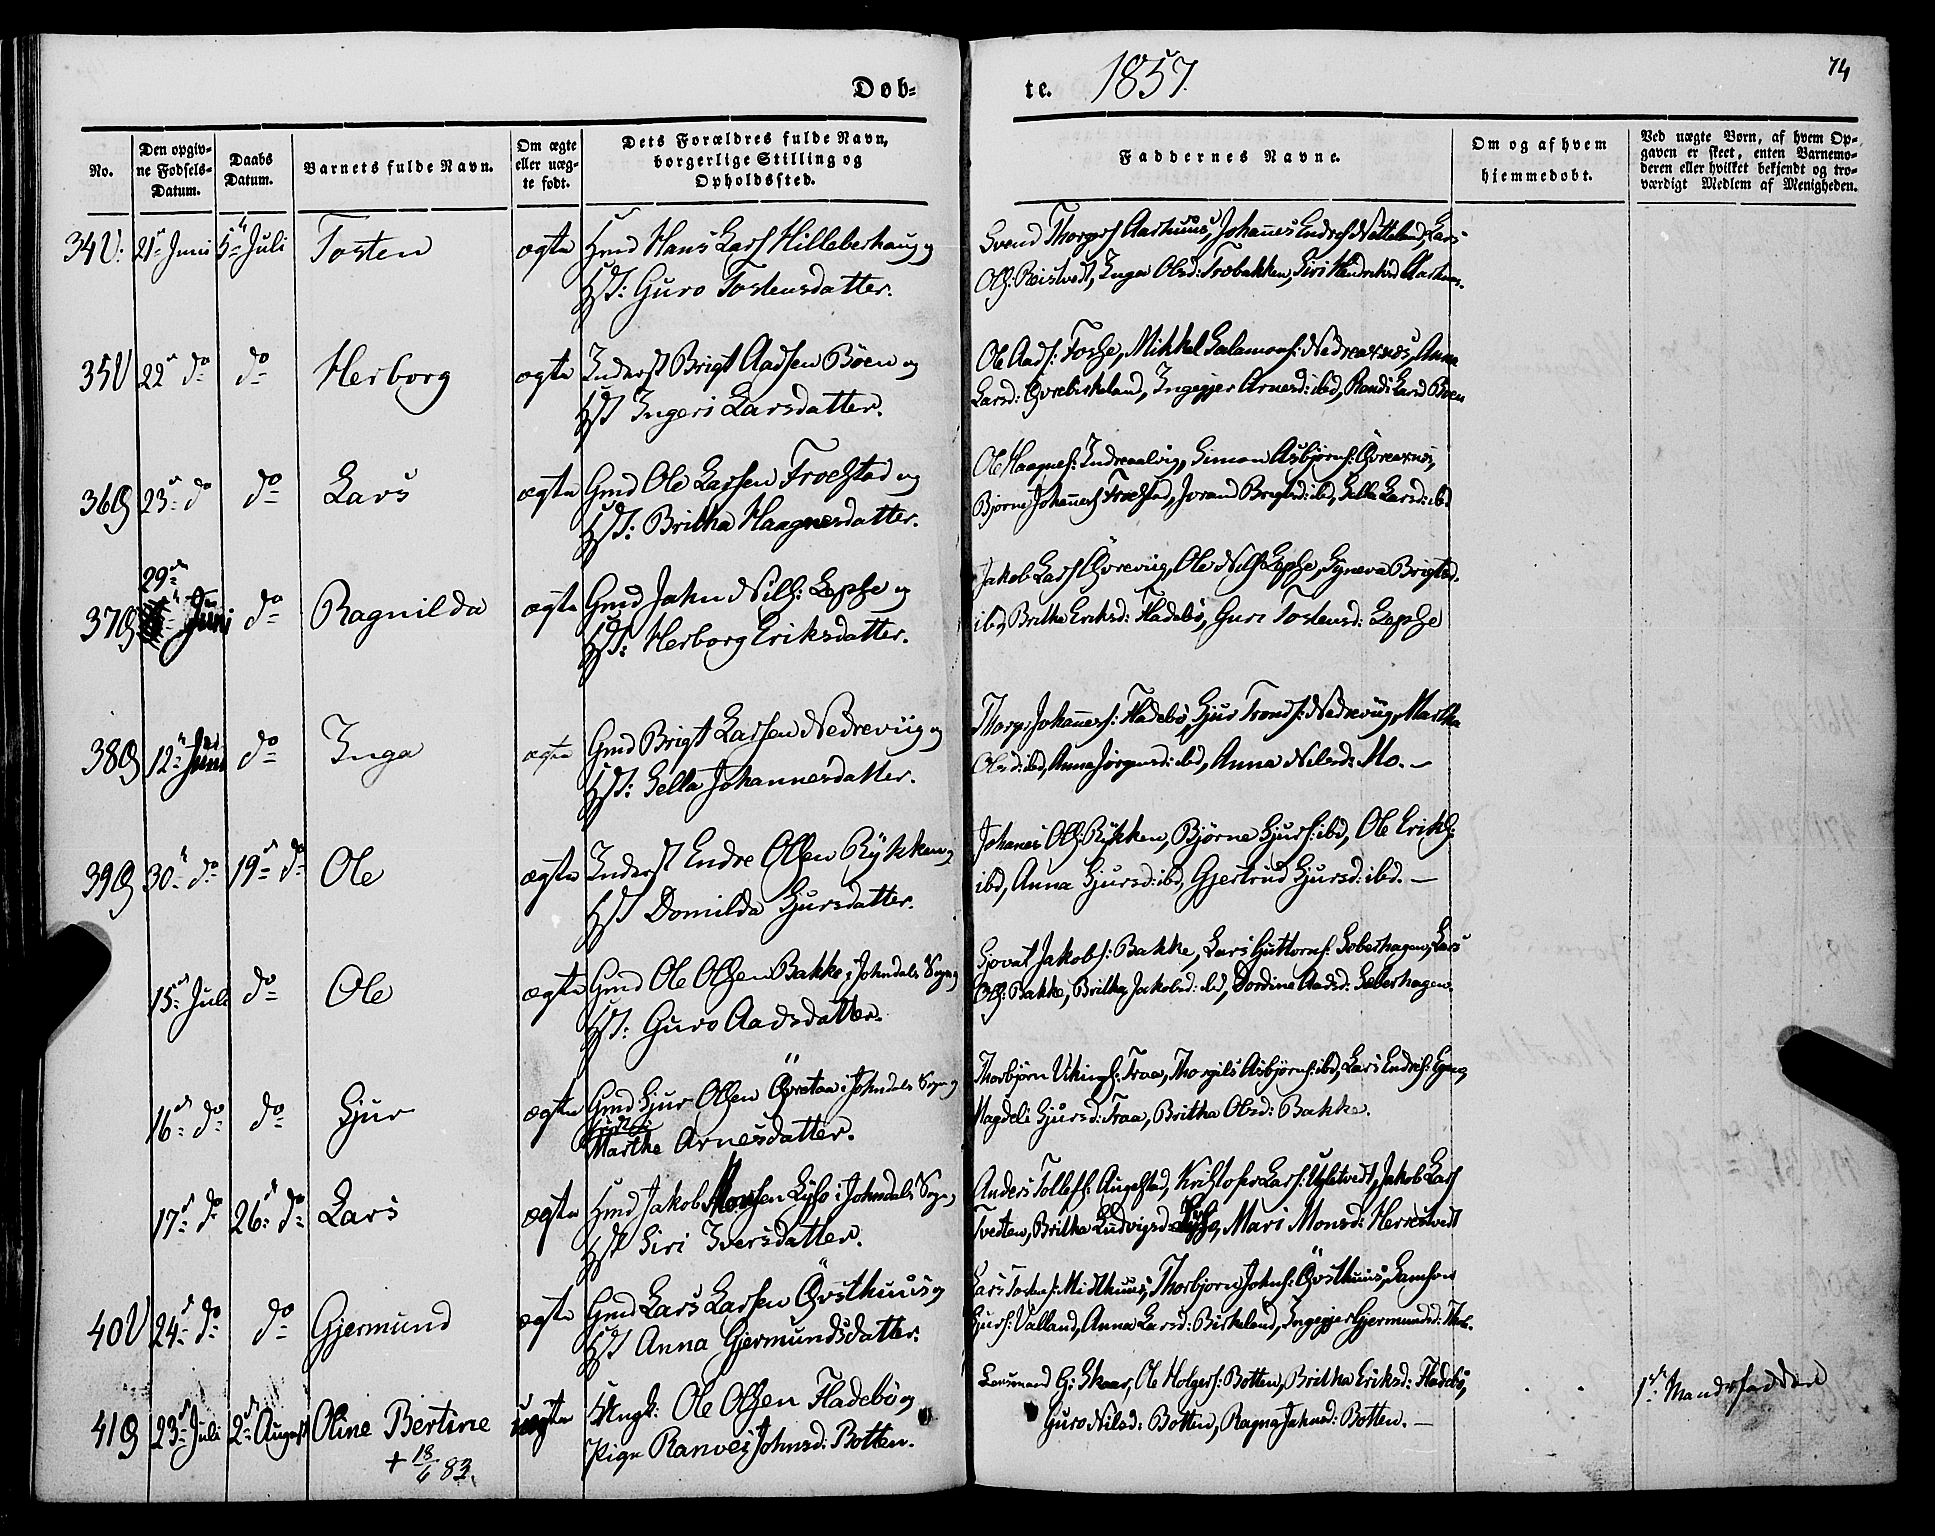 Døb-
te. 1857.
74
No.
Den opgiv-
ne Fødsels-
Datum.
Daabs
Datum.
Barnets fulde Navn.
Om ægte
eller uæg-
te født.
Dets Forældres fulde Navn,
borgerlige Stilling og
Opholdssted.
Faddernes Navne.
Om og af hvem
hjemmedøbt.
Ved uægte Børn, af hvem Op-
gaven er skeet, enten Barnemo-
deren eller hvilket bekjendt og tro-
værdigt Medlem af Menigheden.
34 U. 21 Juni 5 Juli Tosten ægte Gmd Hans Larss Hilleberhaug og
Hst: Guro Tostensdatter.
Svend Thorgers Aarhuus, Johannes Endres Nætteland, Lars
Ols: Reistvedt, Inga Olsd: Træbakken, Siri
35 U 22 do do Herborg ægte Inderst Brigt Aadsen Böen og
Hst Ingeri Larsdatter.
Ole Aads: Fosse, Mikkel Salamons: Nedreaxnes, Anna
Larsd: Øvrebirkeland, Ingegjer Arnesd: ibd, Randi Larsd Böen
36 G 23 do do Lars ægte Gmd Ole Larsen Froestad og
Hst: Britha Haagnesdatter.
Ole Haagnes: Indreaalvig, Simon Asbjørns: Øvreaxnes,
Bjørne Johannes Froestad, Jorand Brigtsd: ibd, Sella Larsd: ibd
37 G 29 Juni do Ragnilda ægte Gmd John Nils: Lepsø og
Hst: Herborg Eriksdatter.
Jakob Lars Øvreviig, Ole Nils Lepsø, Synneva Brigtsd.
ibd, Britha Eriksd: Fladebö, Guri Tostensd: Lepsø
38 G 12 Juni do Inga ægte Gmd Brigt Larsen Nedreviig og
Hst: Sella Johannesdatter.
Thorg: Johannes: Fladebö, Sjur Tronds: Nedreviig, Martha
Olsd: ibd, Anna Jörgensd: ibd, Anna Nilsd: Mo. –
39 G 30 do 19 do Ole ægte Inderst Endre Olsen Rykken og
Hst Domilda Sjursdatter.
Johanes Ols: Rykken, Bjørne Sjurs: ibd, Ole Eriks:
ibd, Anna Sjursd: ibd, Gjertrud Sjursd: ibd. –
15 Juli do Ole ægte Gmd Ole Olsen Bakke i Johndals Sogn og
Hst: Guro Aadsdatter.
Sjovat Jakobs: Bakke, Lars Guttorms: Soberhagen, Lars
Ols: Bakke, Britha Jakobsd: ibd, Dordine Aadsd: Soberhagen.
16 do do Sjur ægte Gmd Sjur Olsen Øvretaa i Johndals Sogn og
Marthe Arnesdatter.
Thorbjörn Vikings: Traa, Thorgils Asbjörns: ibd, Lars Endres:
Magdeli Sjursd: Traa, Britha Olsd: Bakke.
17 do 26 do Lars ægte Hmd Jakob Monsen Lysö i Johndals Sogn og
Hst Siri Iversdatter.
Anders Tollefs: Augestad, Kristofer Lars: Utstvedt, Jakob Lars
Tveten, Britha Ludvigsd: Lysö, Mari Monsd: Herrestvedt
40 U 24 do do Gjermund ægte Gmd Lars Larsen Øvsthuus og
Hst Anna Gjermundsdatter.
Lars Tostens: Midthuus, Thorbjörn Johns: Øvsthuus, Samson
Sjurs: Valland, Anna Larsd: Birkeland, Ingegjer Gjermundsd:
41 G 23 Juli 2 August Oline Bertine uægte Ungk: Ole Olsen Fladebö og
Pige Ranvei Johnsd: Botten.
+ 18/6 83.
Lensmand G: Skaar, Ole Holgers: Botten, Britha Eriksd: Fladebö,
Guro Nilsd: Botten, Ragna Johnsd: Botten. –
1ste Mandsfadder